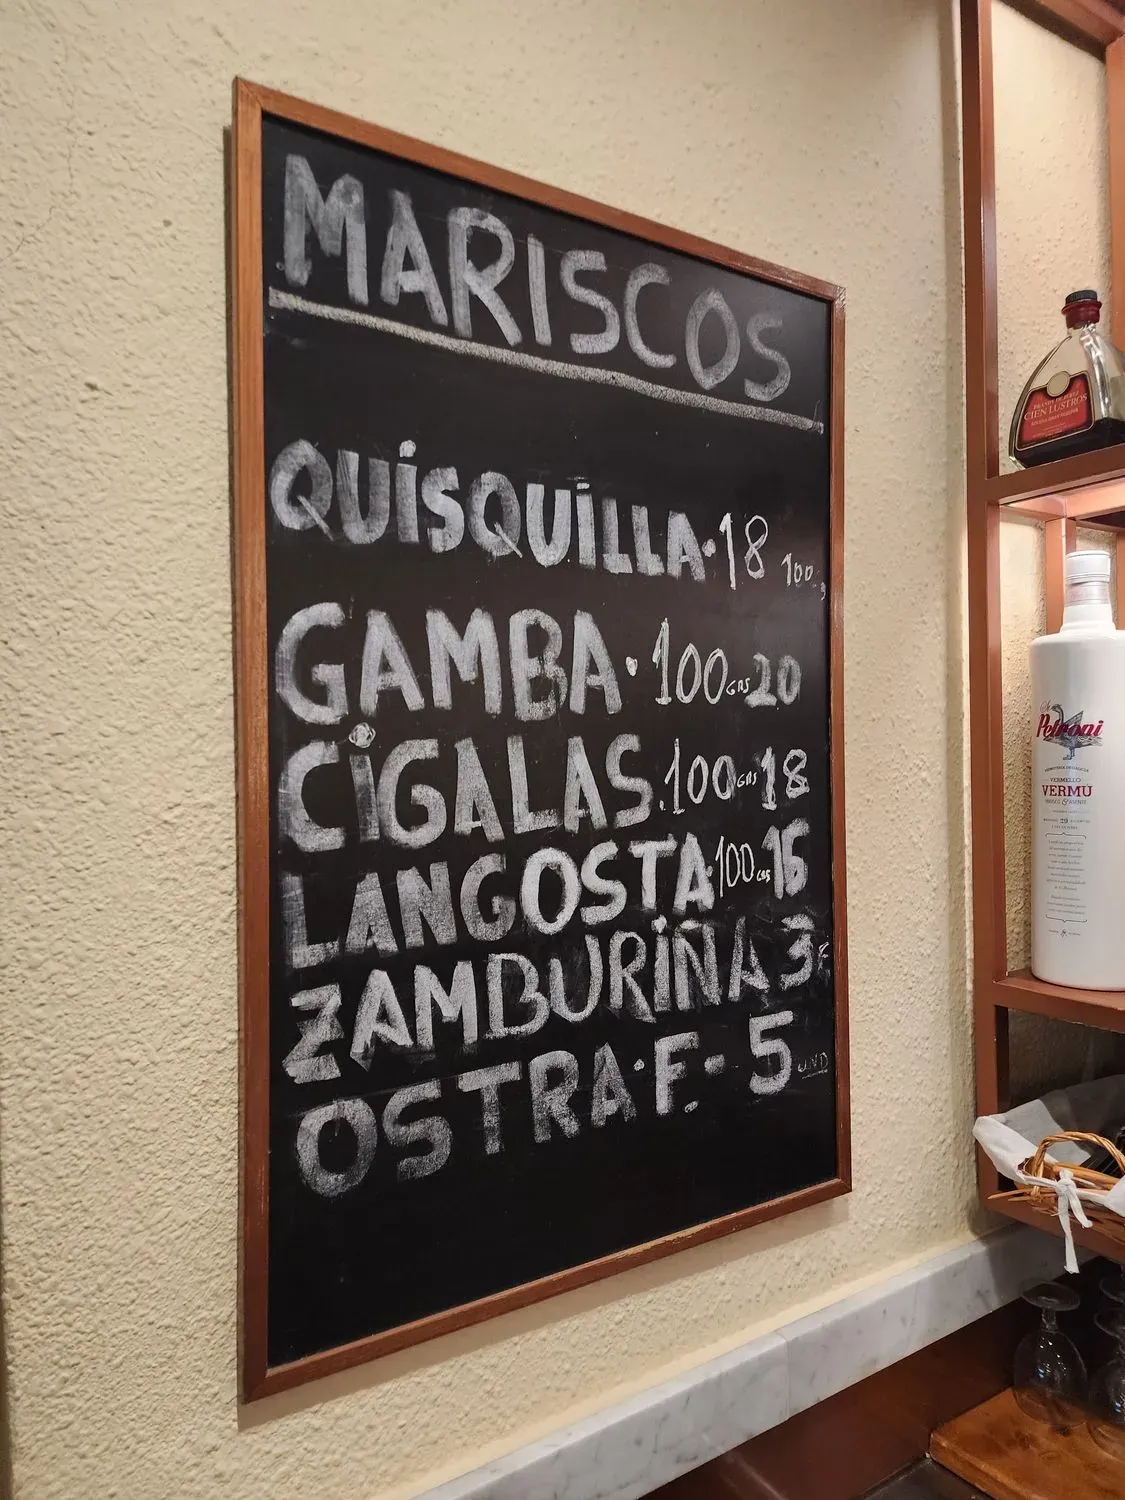 MARISCOS
QUISQUILLA · 18 100g
GAMBA · 100 GRS 20
CIGALAS · 100 GRS 18
LANGOSTA · 100 GRS 15
ZAMBURIÑA 3€
OSTRA · F. - 5 UND
CIEN LUSTROS
Petroni
VERMELLO
VERMÚ